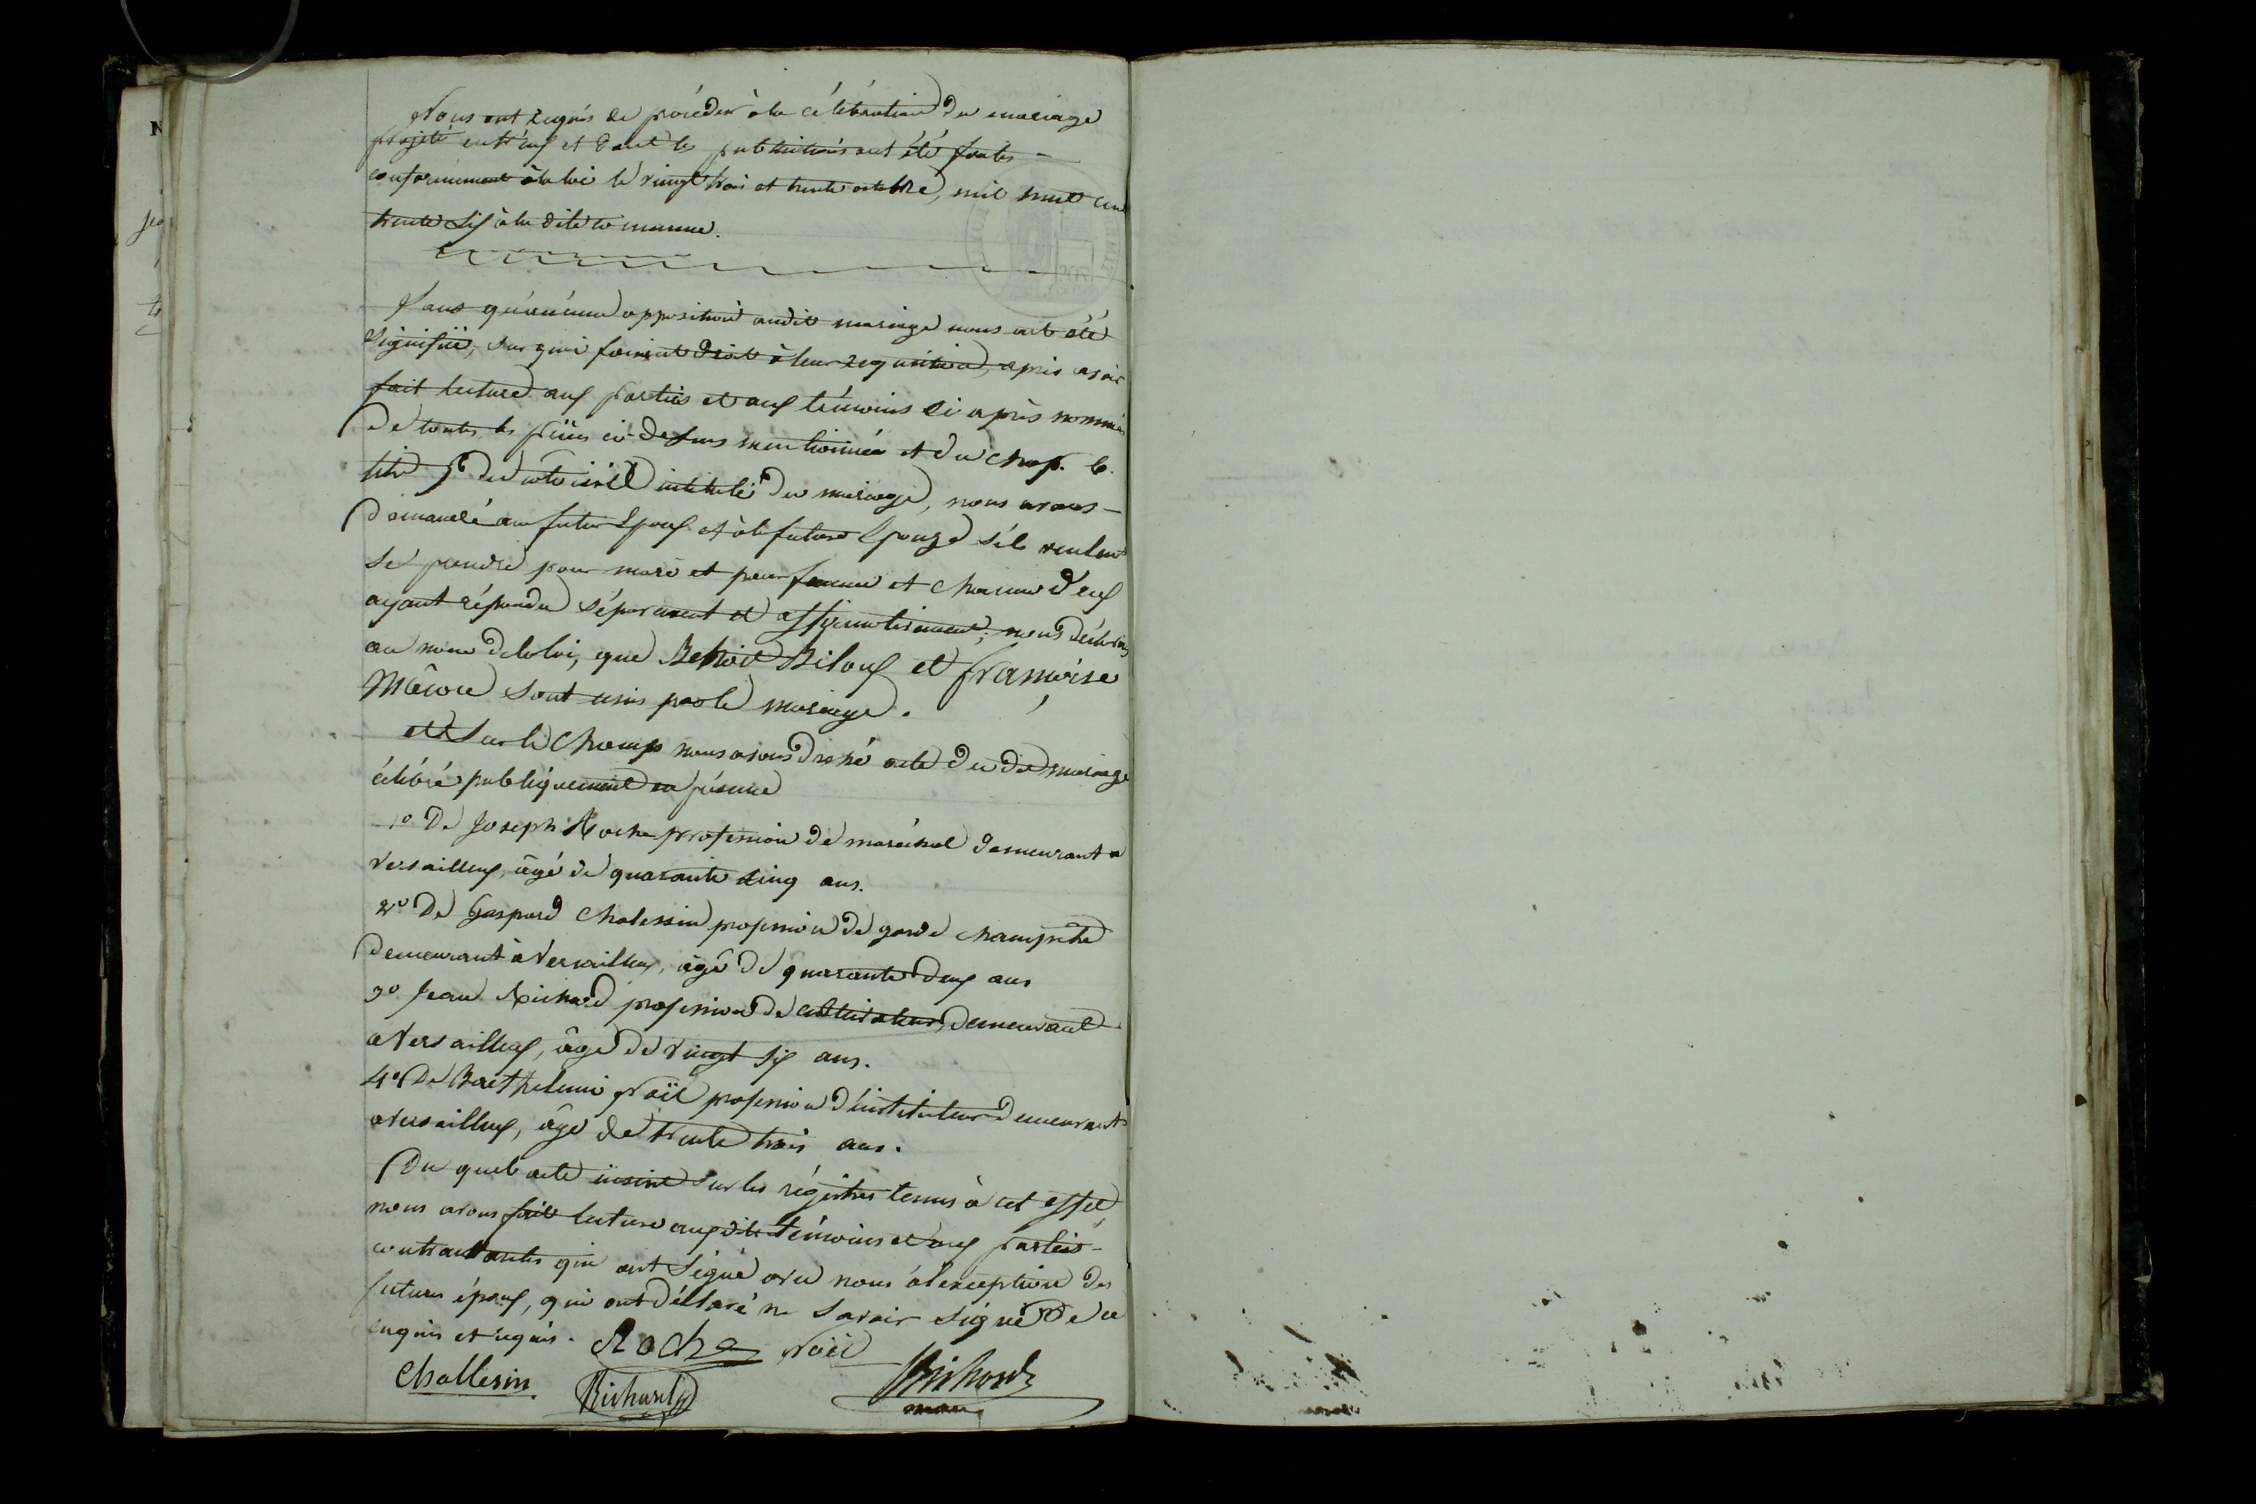 Nous ont requis de procéder à la célébration du mariage
projeté entr'eux et dont les publications ont été faites
conformément à la loi le vingt trois et trente octobre, mil huit cent
trente six à la dite commune.
Sans qu'aucune opposition audit mariage nous ait été
signifiée, sur quoi faisant droit à leur requisition, après avoir
fait lecture aux parties et aux témoins ci après nommés
de toutes les pièces ci-dessus mentionnées et du chap. 6.
titre 5e du code civil intitulé du mariage, nous avons
demandé au futur Epoux et à la future Epouze s'ils veulent
se prendre pour mari et pour femme et chacun d'eux
ayant répondu séparement et affirmativement, nous déclarons
au nom de la loi, que Benoit Biloux et françoise
Mâcou sont unis par le mariage.
et Sur le Champ nous avons dressé acte du dit mariage
célébré publiquement en présence
1o De Joseph Roche profession de maréchal demeurant a
Versailleux, âgé de quarante cinq ans.
2o De Gaspard Chalessin profession de garde champêtre
demeurant à Versailleux, âgé de quarante deux ans
3o Jean Richard profession de cultivateur, demeurant
a Versailleux, âgé de vingt six ans.
4o De Barthelemi Noël profession d'instituteur demeurant
a Versailleux, âgé de trente trois ans.
Du quel acte inscrit sur les régistres tenus à cet effet,
nous avons fait lecture aux dits témoins et aux parties
contractantes qui ont signé avec nous à l'exception des
futurs époux, qui ont déclaré ne savoir signé de ce
enquis et requis. Roche Noël
Challesin Richard Richard
maire